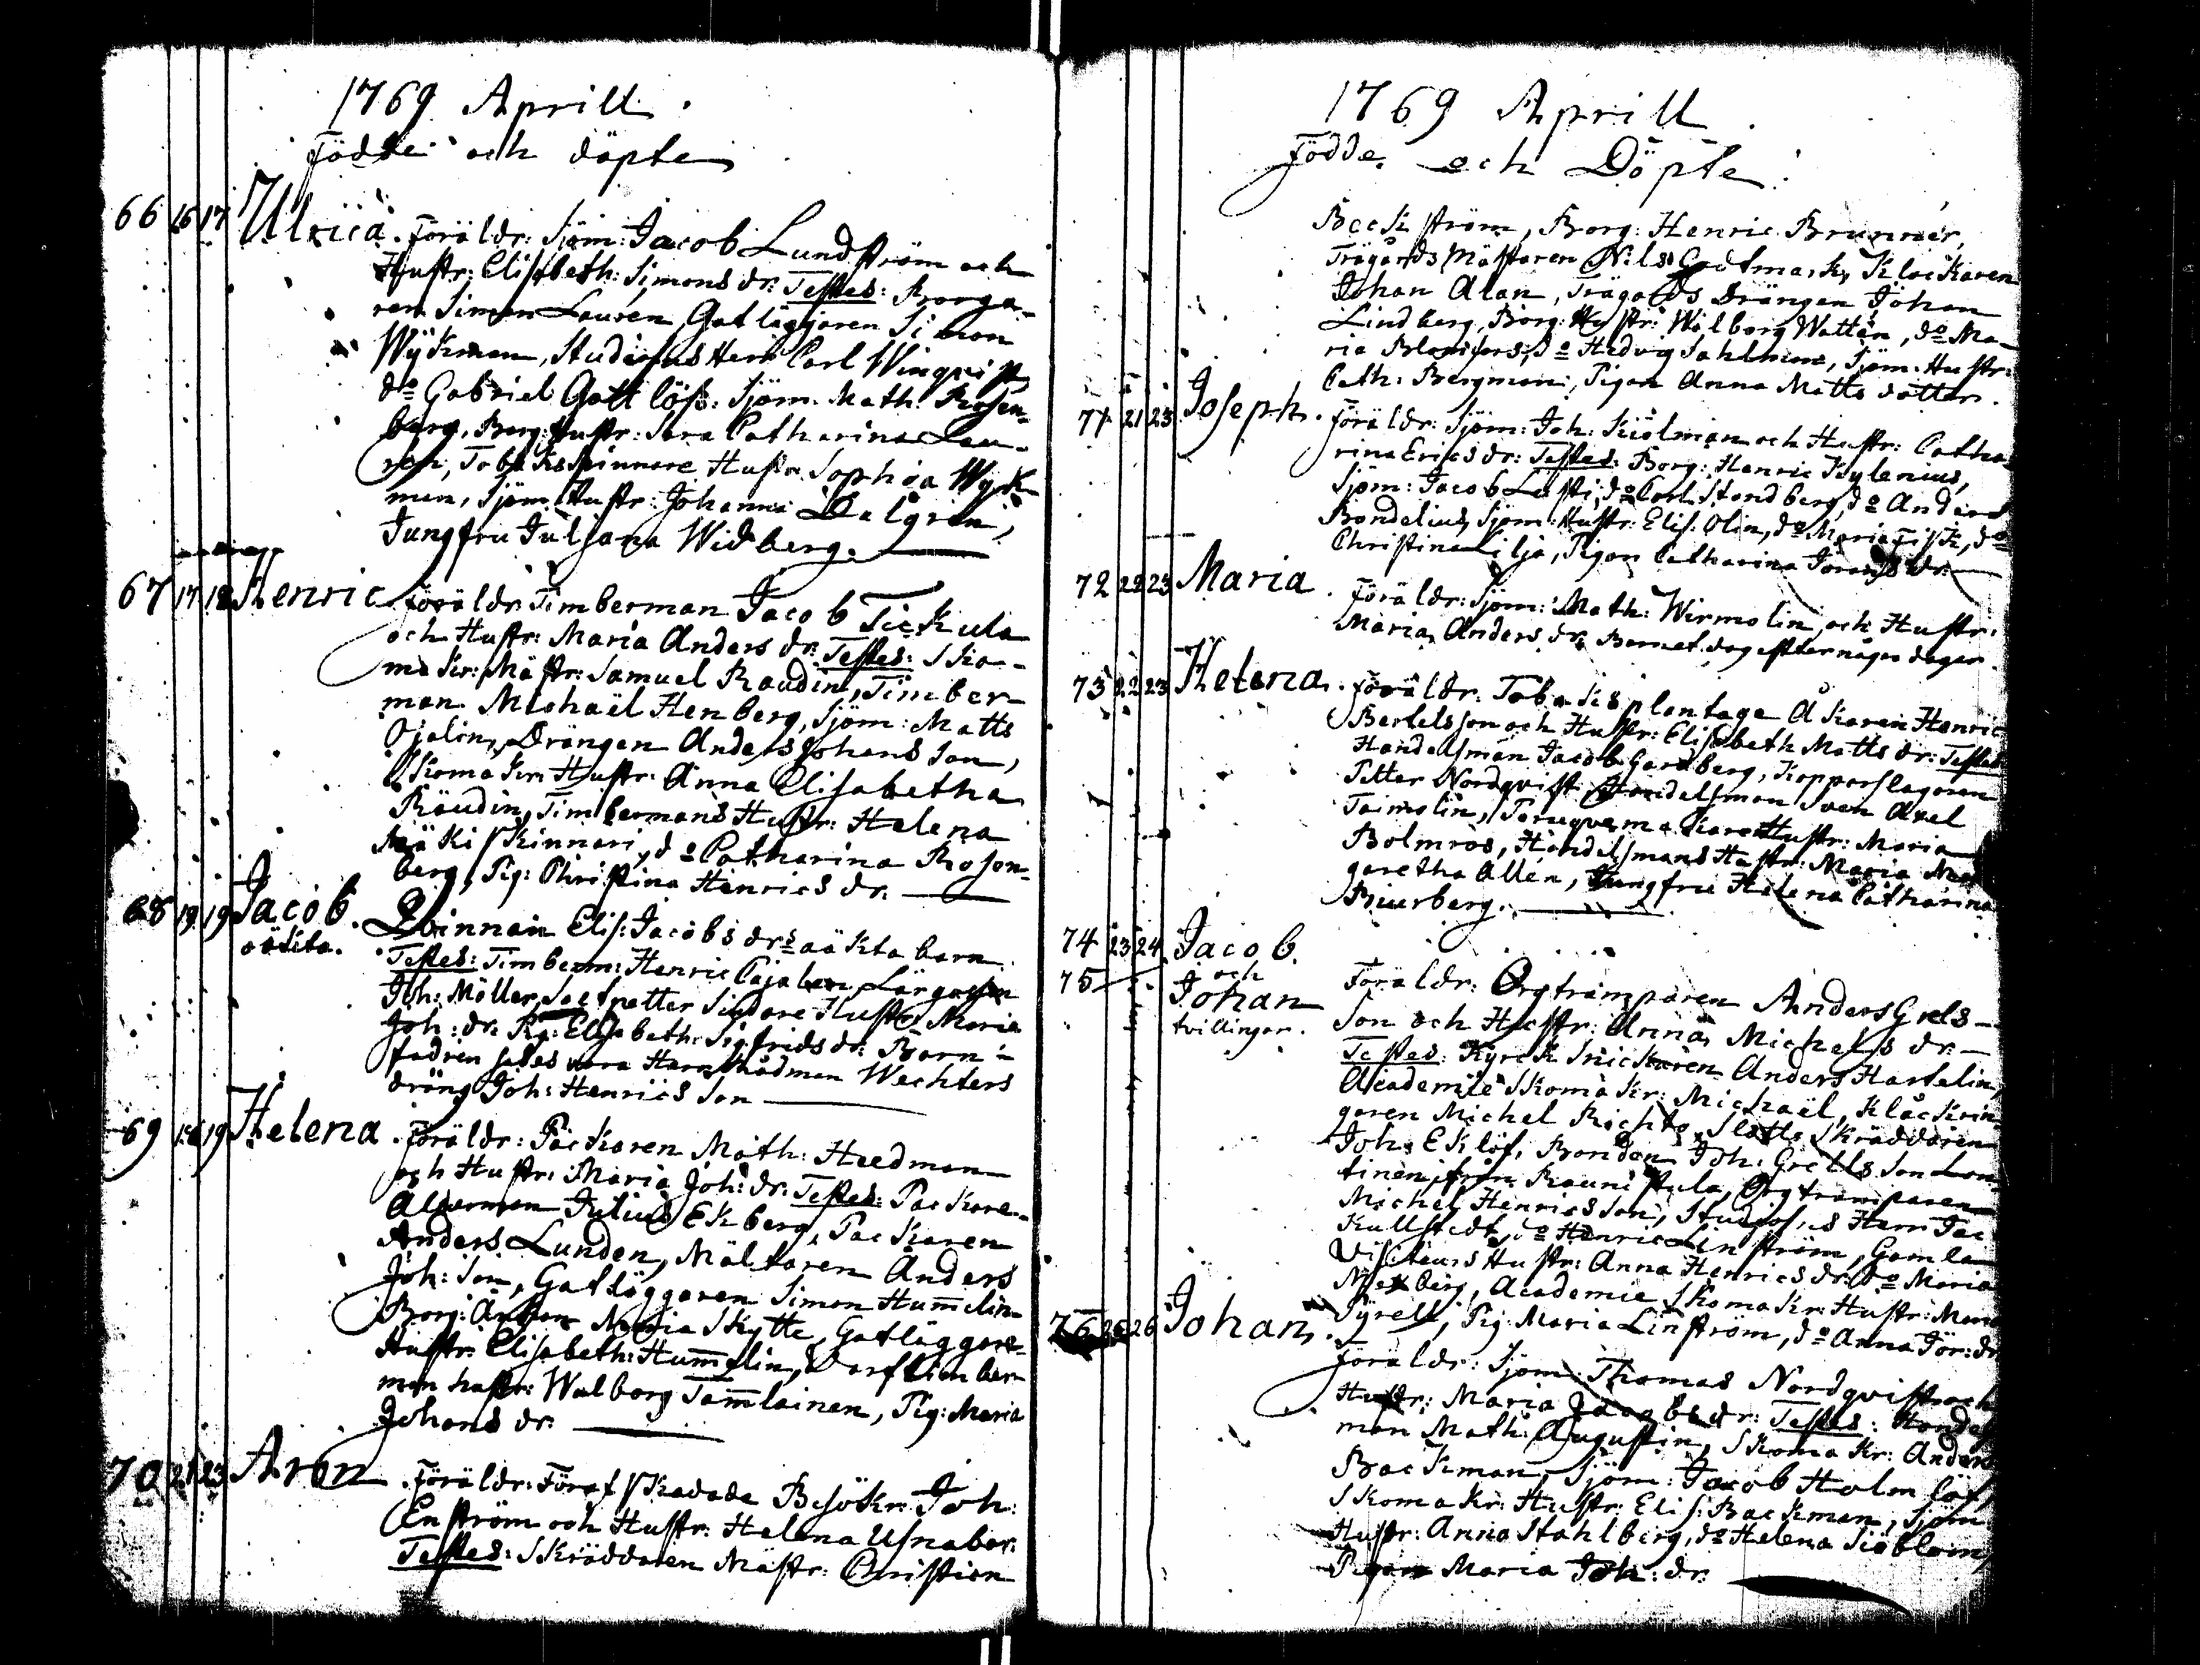 1769 Aprill.
Födde och döpte
66 16 17 Ulrica. Föräldr: Sjöm: Jacob Lundström och
Hustr: Elisabeth: Simons dr: Testes: Borga-
ren Simon Lauren, Gatläggaren Simon
Wykman, Studiosus Herr Carl Wingvist
do Gabriel Gottlöss: Sjöm. Math: Rosen-
berg, Borg: Hustr: Sara Catharina Lau-
ren, Tobaksspinnare Hustr Sophia Wyk-
man, Sjöm: Hustr: Johanna Dalgren,
Jungfru Juliana Widberg.
67 17 18 Henric. Föräldr: Timberman Jacob Tickula
och Hustr: Maria Anders dr: Testes: Sko-
makr: Mästr: Samuel Raudin, Timber-
man Michaël Henberg, Sjöm: Matts
Ojalin, Drängen Anders Johans Son,
Skomakr: Hustr: Anna Elisabetha
Räudin, Timbermans Hustr: Helena
Mäki Skinnari, do Catharina Rosen-
berg, Pig: Christina Henrics dr.
68 19 19 Jacob. Qvinnan Elis: Jacobs drs oäkta barn.
oäkta. Testes: Timberm: Henric Cajalen, Lärgossen
Joh: Möller, Hustr Maria
Joh: dr. Pig: Elisabeth: Sigfrids dr. Barn-
fadren sades vara Herr Rådman Wechters
dräng Joh: Henrics Son
69 18 19 Helena. Föräldr: Packaren Math: Heedman
och Hustr: Maria Joh: dr: Testes: Packare-
Alderman Julius Ekberg, Packaren
Anders Lunden, Mältaren Anders
Joh: Son, Gatläggaren Simon Hum̄elin
Borg: Änkan Maria Skytte, Gatläggare-
Hustr: Elisabeth: Hum̄elin, Varftimber-
man hustr: Walborg Tam̄lainen, Pig: Maria
Johans dr.
70 21 23 Aron. Föräldr: Föraf Skedade Besökr: Joh:
Enström och Hustr: Helena Usnaber.
Testes: Skräddaren Mästr: Christian
1769 Aprill.
Födde och Döpte.
Beckström, Borg: Henric Brunnér,
Trägårds Mästaren Nils Godtmark, Klockaren
Johan Alan, Trägårds Drängen Johan
Lindberg, Borg: Hustr: Walborg Wattén, do Ma-
ria do Hedvig Sahlman, Sjöm: Hustr:
Cath: Bergman, Pigan Anna Matts dotter.
71 21 23 Joseph. Föräldr: Sjöm: Joh: Kiölman och Hustr: Catha-
rina Erics dr: Testes: Borg: Henric Kylenius,
Sjöm: Jacob Lasti, do Carl Standberg, do Anders
Bondelius, Sjöm: Hustr: Elis: Olin, do Maria Fisk, do
Christina Lilja, Pigan Catharina Jörans dr.
72 22 23 Maria. Föräldr: Sjöm: Math: Wirmolin, och Hustr:
Maria Anders dr. Barnet dog efter några dagar.
73 22 23 Helena. Föräldr: Tobaksplantage Åkaren Henric
Bertelsson och Hustr: Elisabeth Matts dr: Testes
Handelsman Jacob Gardberg, Kopparslagaren
Petter Nordqvist, Handelsman Sven Axel
Taimolin, Peruqvemakare Hustr: Maria
Bolmros, Handelsmans Hustr: Maria Mar-
garetha Allén, Jungfru Helena Catharina
Biurberg.
74 23 24 Jacob.
75 och
Johan
tvillingar.
Föräldr: Orgtramparen Anders Grels-
Son och Hustr: Anna Michels dr.
Testes: Kyrck Snickaren Anders Hastelin,
Academie Skomakr: Michaël, Klåckrin-
garen Michel Richto, Slotts Skräddaren
Joh: Eklöf, Bonden Joh: Grells Son Lon-
tinen från Raunistula, Orgtramparen
Michel Henrics Son, Studiosus Herr Jac
Kullstedt, do Henric Linström, Gamla
Visiteurs Hustr: Anna Henrics dr: do Maria
Mekberg, Academie Skomakr: Hustr: Maria
Pyrell, Pig: Maria Linström, do Anna Jör: dr
76 26 26 Johan.
Föräldr: Sjöm: Thomas Nordqvist och
Hustr: Maria Jacobs dr: Testes: Handels
man Math: Augustin, Skomakr: Anders
Backman, Sjöm: Jacob Holmlöf,
Skomakr: Hustr: Elis: Backman, Sjöm
Hustr: Anna Stahlberg, do Helena Siöblom,
Pigan Maria Joh: dr.